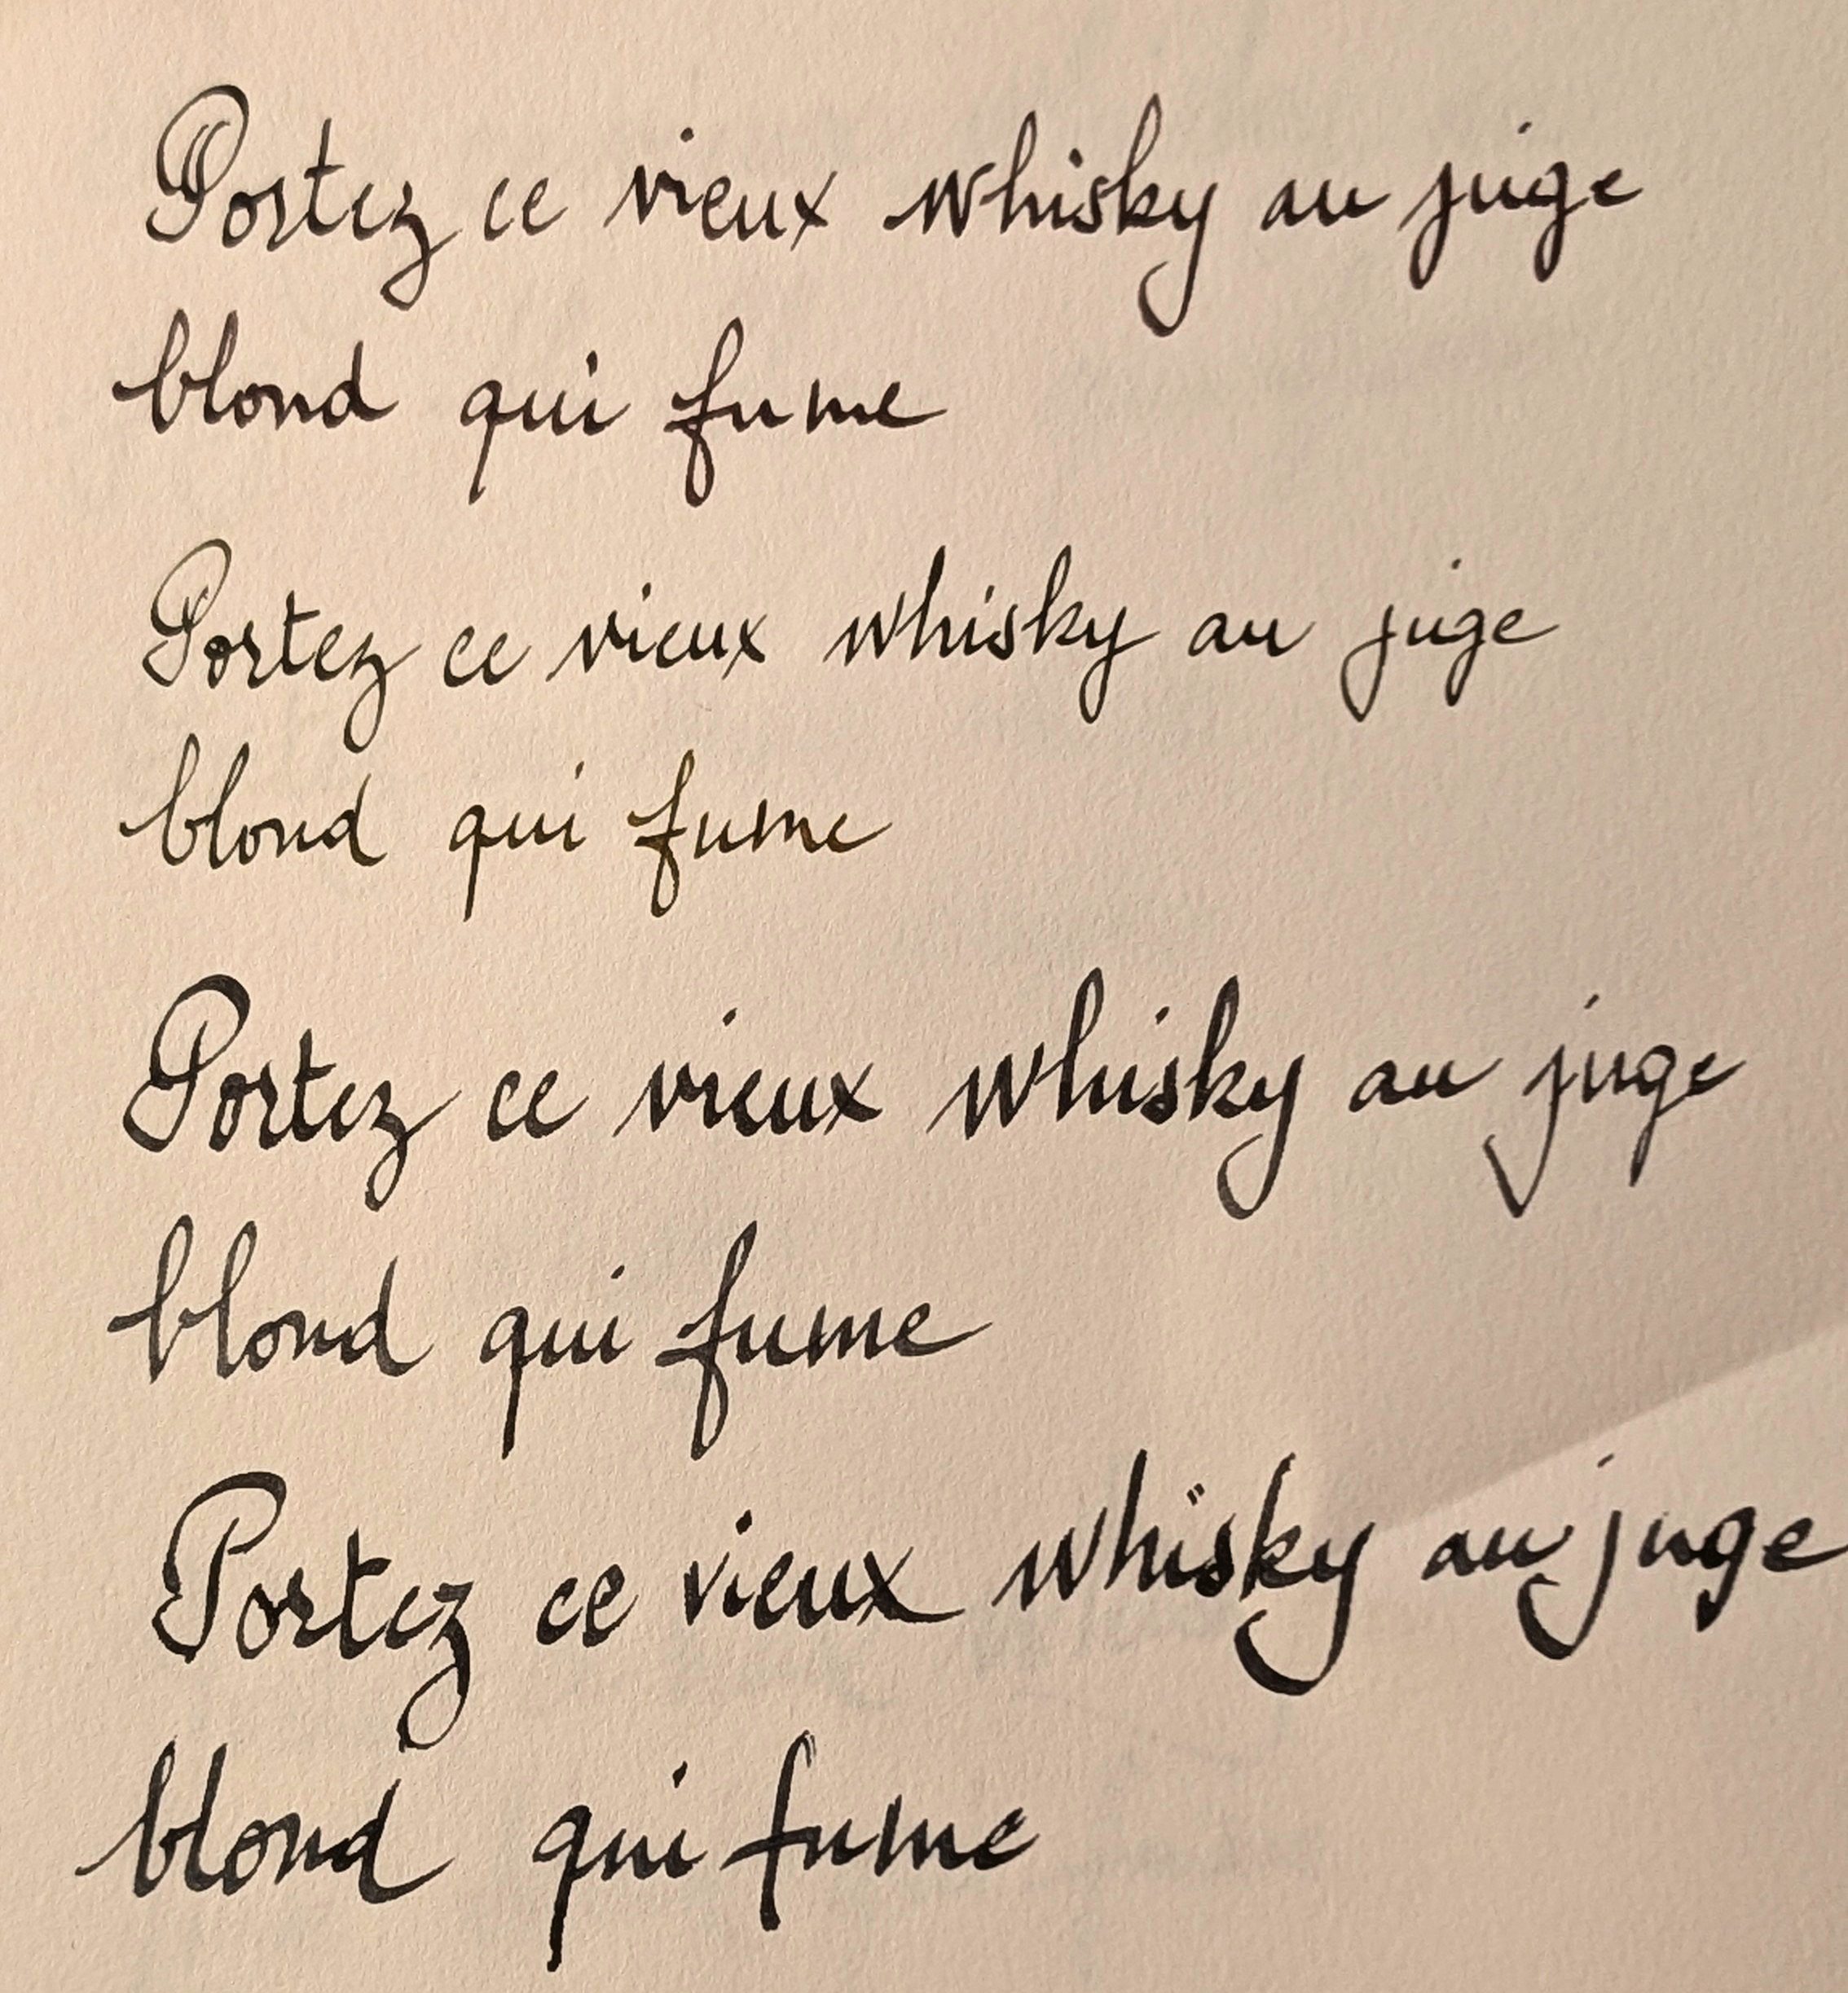 Portez ce vieux whisky au juge
blond qui fume
Portez ce vieux whisky au juge
blond qui fume
Portez ce vieux whisky au juge
blond qui fume
Portez ce vieux whïsky au juge
blond qui fume